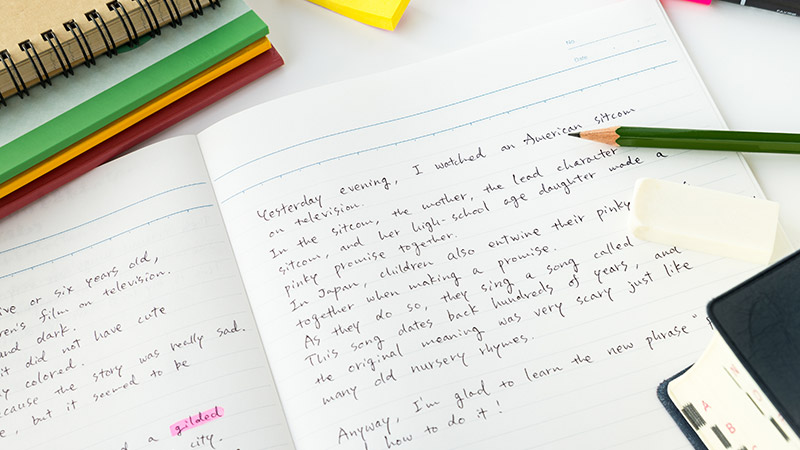 ive or six years old,
ren's film on television.
and dark.
it did not have cute
y colored.
ecause the story was really sad.
e, but it seemed to be
d a gilded
city.
No.
Date
Yesterday evening, I watched an American sitcom
on television.
In the sitcom, the mother, the lead character
sitcom, and her high-school age daughter made a
pinky promise together.
In Japan, children also entwine their pinky
together when making a promise.
As they do so, they sing a song called
This song dates back hundreds of years, and
the original meaning was very scary just like
many old nursery rhymes.
Anyway, I'm glad to learn the new phrase "
how to do it!
A
B